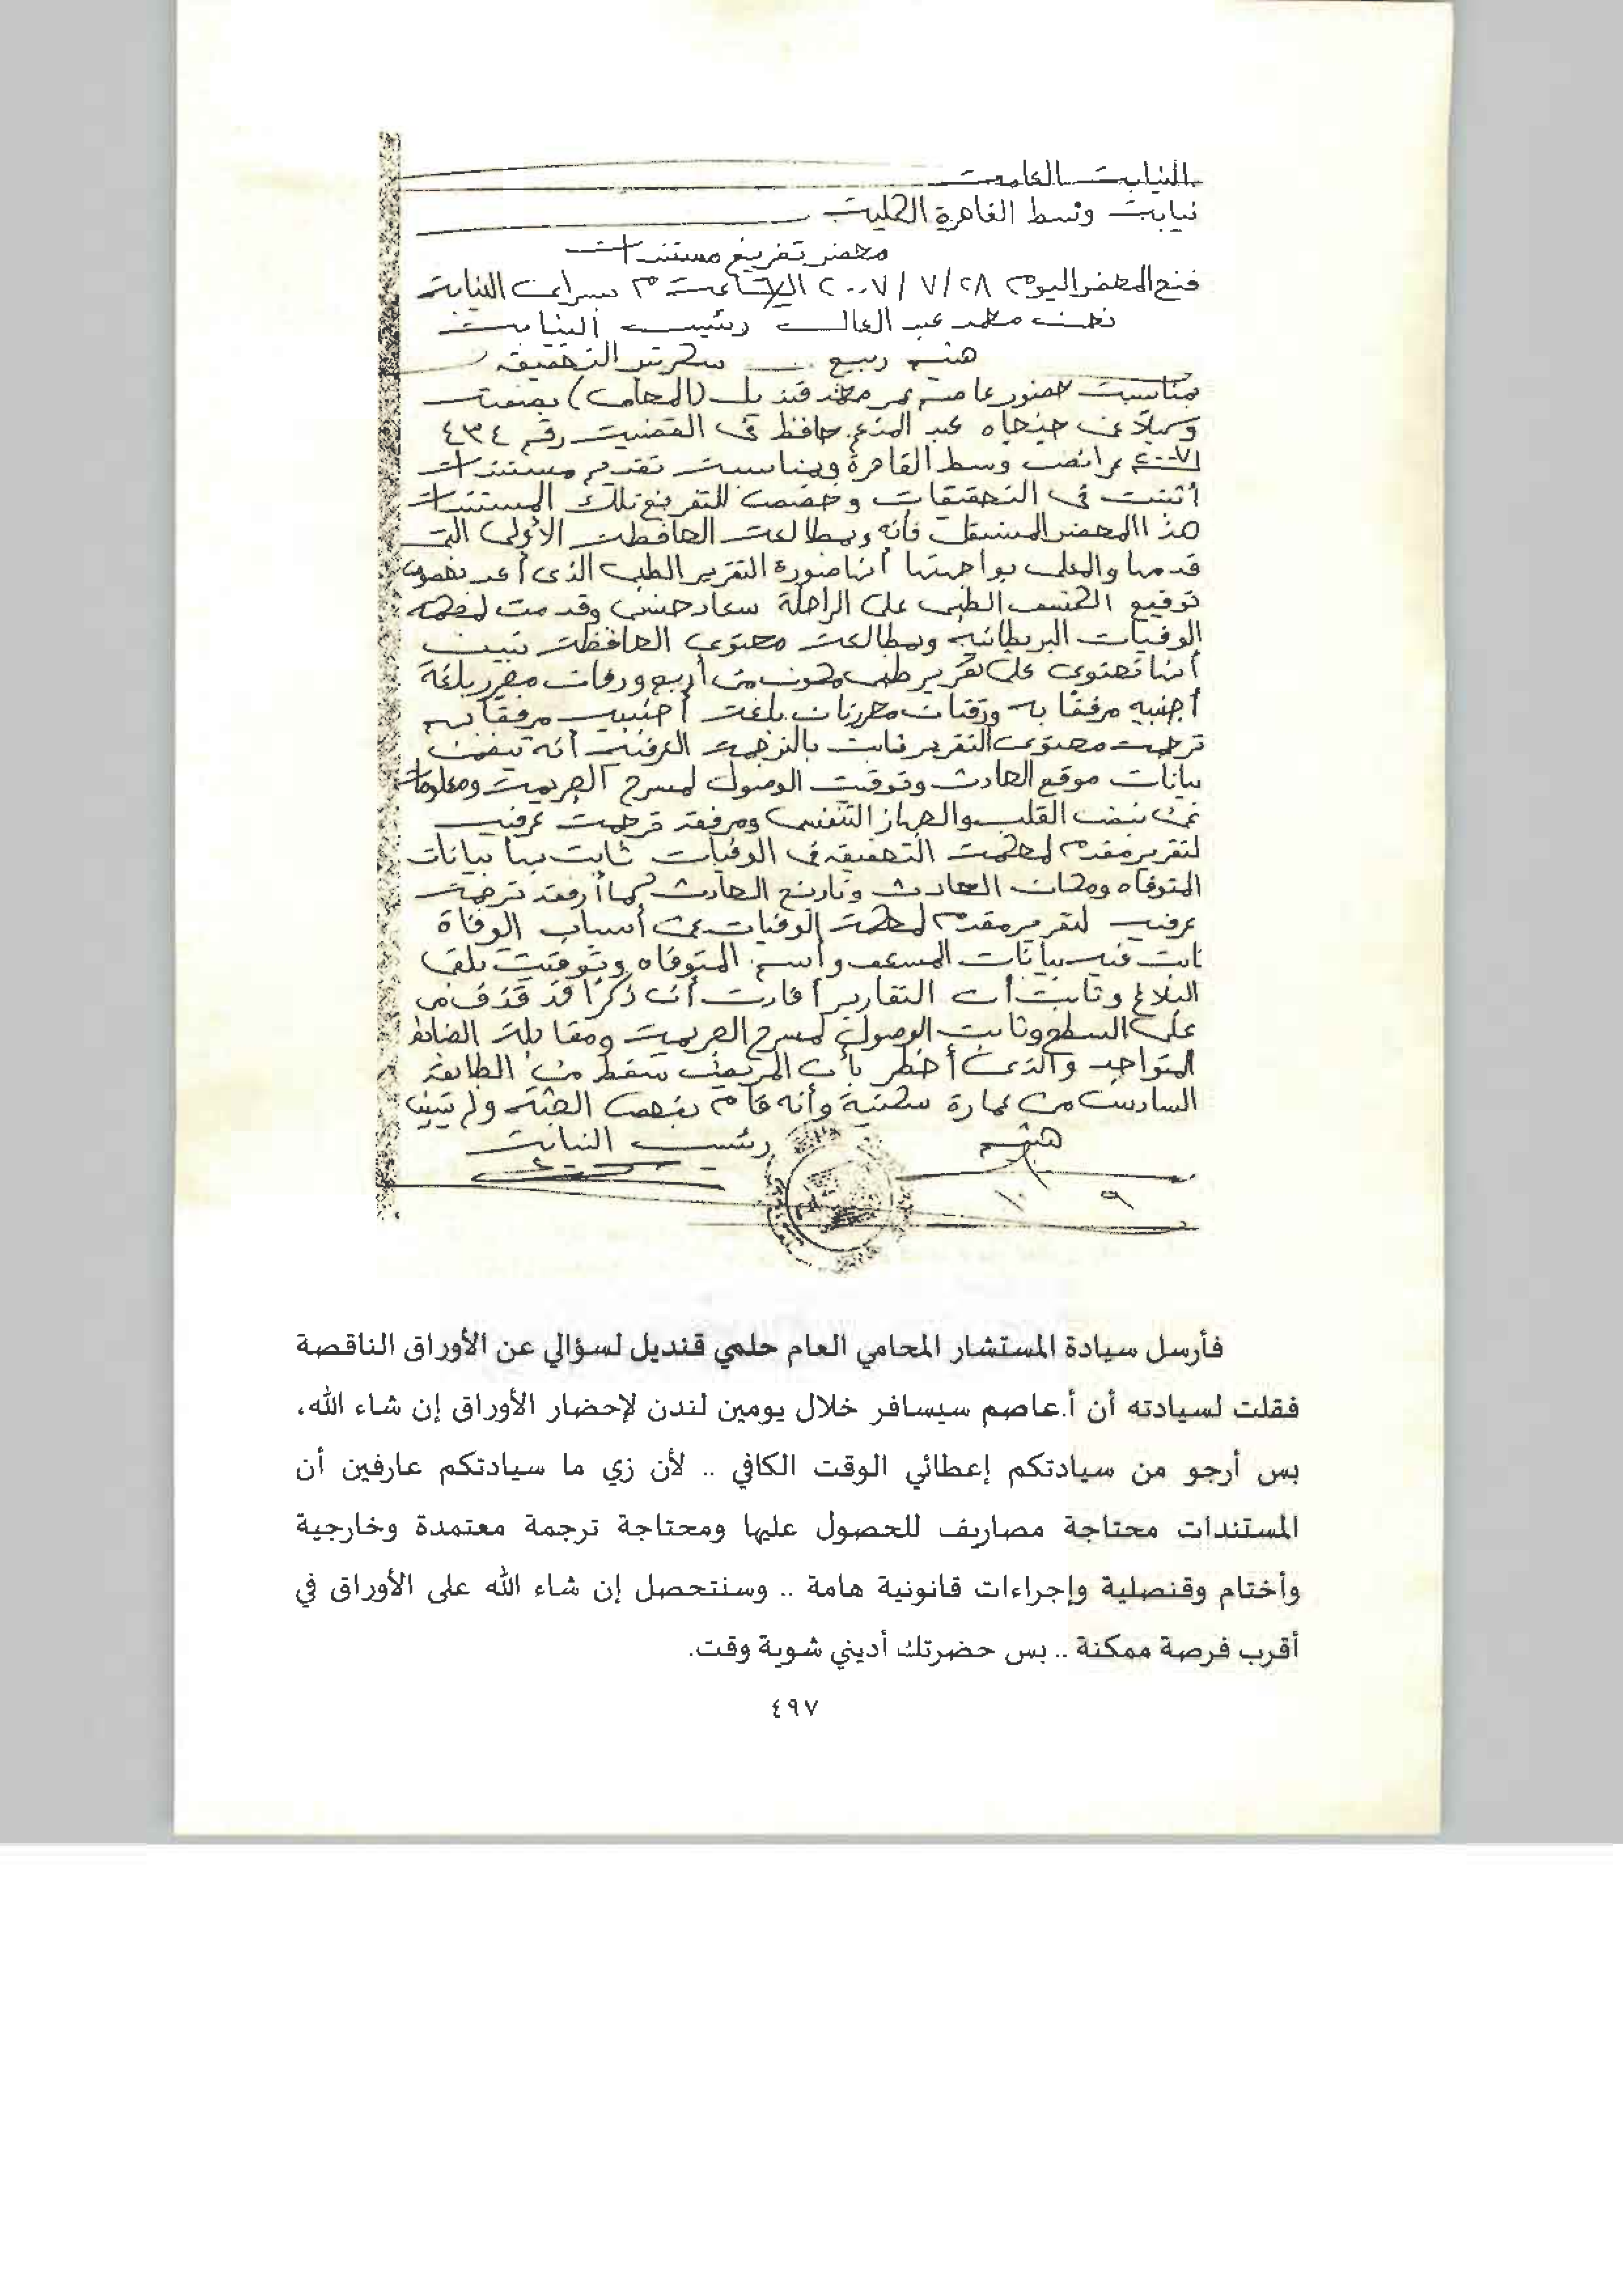 النيابة العامة
نيابة وسط القاهرة الكلية
محضر تفريغ مستندات
فتح المحضر اليوم ٢٨/٧/٢٠٠٧ الساعة ٣ م بسراي النيابة
نحن محمد عبد العال رئيس النيابة
هيثم ربيع سكرتير التحقيق
بمناسبة حضور عاصم محمد قنديل (المحامي) بصفته
وكيلا عن جنجاه عبد المنعم حافظ في القضية رقم ٤٣٤
عرائض وسط القاهرة وبمناسبة تقديم مستندات
أثبتت في التحقيقات وخصصت للتفريغ تلك المستندات
هذا المحضر المستقل فأنه وبمطالعة الحافظة الأولى التي
قدمها والمعلى بواجهتها أنها صورة التقرير الطبي الذي أعد بخصوص
توقيع الكشف الطبي على الراحلة سعاد حسني وقدمت لمحكمة
الوفيات البريطانية وبمطالعة محتوى الحافظة تبين
أنها تحتوي على تقرير طبي مكون من أربع ورقات محرر بلغة
أجنبية مرفقا به ورقتان محررتان بلغة أجنبية مرفقا به
ترجمة محتوى التقرير ثابت بالترجمة العرفية أنه تضمن
بيانات موقع الحادث وتوقيت الوصول لمسرح الجريمة ومعلومات
عن نبض القلب والجهاز التنفسي ومرفقه ترجمة عرفية
لتقرير مقدم لمحكمة التحقيق في الوفيات ثابت بها بيانات
المتوفاه ومكان الحادث وتاريخ الحادث كما أرفقه ترجمة
عرفية لتقرير مقدم لمحكمة الوفيات عن أسباب الوفاة
ثابت فيه بيانات المسعف وأسم المتوفاه وتوقيت تلقي
البلاغ وثابت أن التقارير أفادت أن ذكرا قد قذف من
على السطح وثابت الوصول لمسرح الجريمة ومقابلة الضابط
المتواجد والذي أخطر بأن المريض سقط من الطابق
السادس من عمارة سكنية وأنه قام بفحص الجثة ولم تبين
هيثم رئيس النيابة
فأرسل سيادة المستشار المحامي العام حلمي قنديل لسؤالي عن الأوراق الناقصة
فقلت لسيادته أن أ.عاصم سيسافر خلال يومين لندن لإحضار الأوراق إن شاء الله،
بس أرجو من سيادتكم إعطائي الوقت الكافي .. لأن زي ما سيادتكم عارفين أن
المستندات محتاجة مصاريف للحصول عليها ومحتاجة ترجمة معتمدة وخارجية
وأختام وقنصلية وإجراءات قانونية هامة .. وسنتحصل إن شاء الله على الأوراق في
أقرب فرصة ممكنة .. بس حضرتك أديني شوية وقت.
٤٩٧